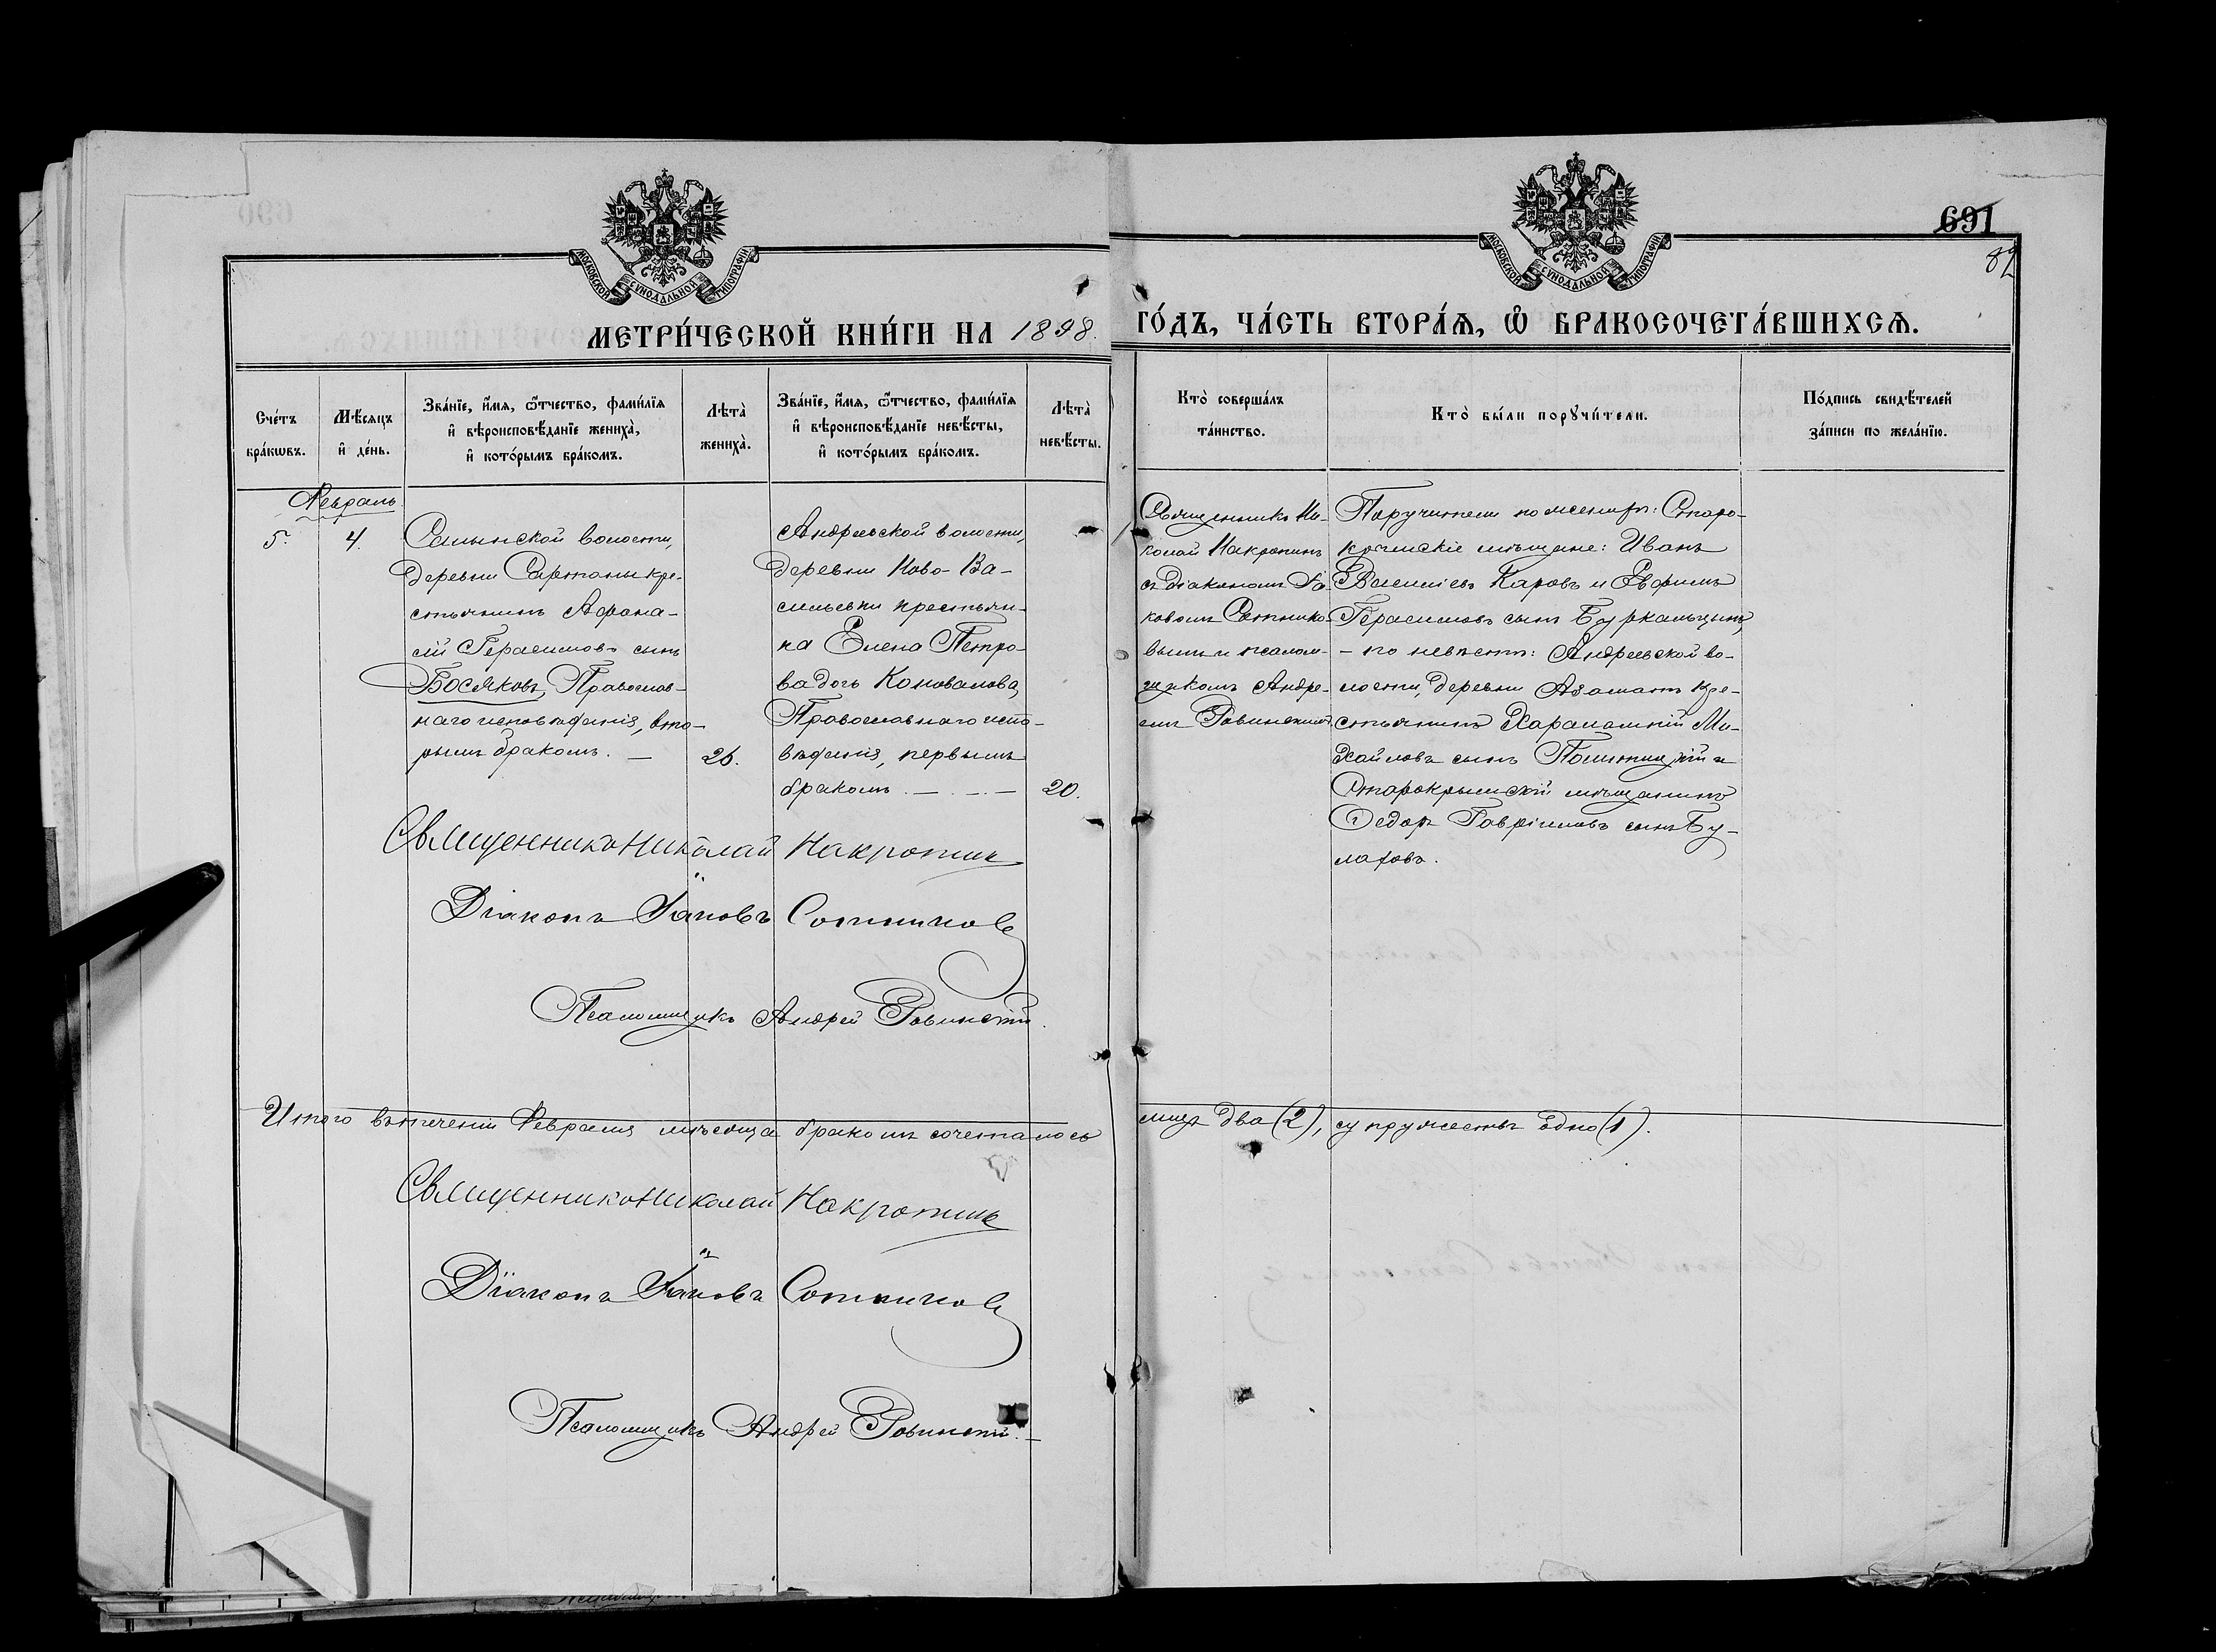 691
82
МОСКОВСКОЙ СѴНОДАЛЬНОЙ ТИПОГРАФІИ
МОСКОВСКОЙ СѴНОДАЛЬНОЙ ТИПОГРАФІИ
МЕТРИ́ЧЕСКОЙ КНИ́ГИ НА 1898.
ГО́ДЪ, ЧА́СТЬ ВТОРА́Ѧ, Ѽ БРАКОСОЧЕТА́ВШИХСѦ.
Сче́тъ
бра́кѡвъ.
Мѣ́сяцъ
и҆ де́нь.
Зва́нїе, и҆́мя, ѻ҆́тчество, фами́лїя
и҆ вѣроисповѣ́данїе жениха̀,
и҆ кото́рымъ бра́комъ.
Лѣта̀
жениха̀.
Зва́нїе, и҆́мя, ѻ҆́тчество, фами́лїя
и҆ вѣроисповѣ́данїе невѣ́сты,
и҆ кото́рымъ бра́комъ.
Лѣта̀
невѣ́сты.
Кто̀ соверша́лъ
та́инство.
Кто̀ бы́ли порꙋчи́тели.
По́дпись свидѣ́телей
за́писи по жела́нїю.
Февраль
5.
4.
Салынской волости,
деревни Сартаны кре-
стьянинъ Афана-
сій Герасимовъ сынъ
Босяковъ, Православ-
наго исповѣданія, вто-
рымъ бракомъ. —
26.
Андреевской волости,
деревни Ново-Ва-
сильевки крестьян-
ка Елена Петро-
ва дочь Коновалова,
Православнаго испо-
вѣданія, первымъ
бракомъ. — . — . —
20.
Священникъ Ни-
колай Накропинъ
съ діакономъ Іа-
ковомъ Сотнико-
вымъ и псалом-
щикомъ Андре-
емъ Ровинскимъ
Поручители по женихѣ: Старо-
крымскіе мѣщане: Иванъ
Василіевъ Каровъ и Ефримъ
Герасимовъ сынъ
— по невѣстѣ: Андреевской во-
лости, деревни Азаматъ кре-
стьянинъ Харалампій Ми-
хайловъ сынъ и
Старокрымскій мѣщанинъ
Ѳедоръ Гавріиловъ сынъ Бу-
латовъ.
Священникъ Николай Накропинъ
Діаконъ Іаковъ Сотниковъ
Псаломщикъ Андрей Ровинскій.
Итого въ теченіи Февраля мѣсяца бракомъ сочеталось
лицъ два (2), супружествъ одно (1).
Священникъ Николай Накропинъ
Діаконъ Іаковъ Сотниковъ
Псаломщикъ Андрей Ровинскій. —